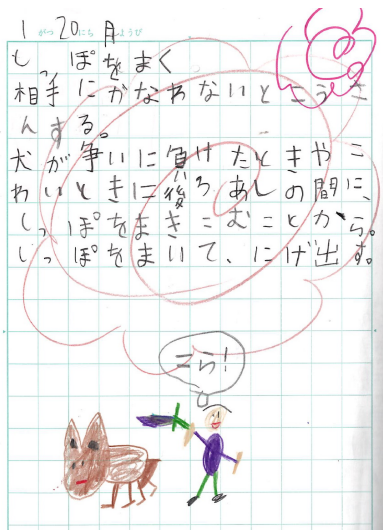 1 がつ 20 にち 月 ようび
しっぽをまく
相手にかなわないとこうさ
んする。
犬が争いに負けたときやこ
わいときに後ろあしの間に、
しっぽをまきこむことから。
しっぽをまいて、にげ出す。
こら!